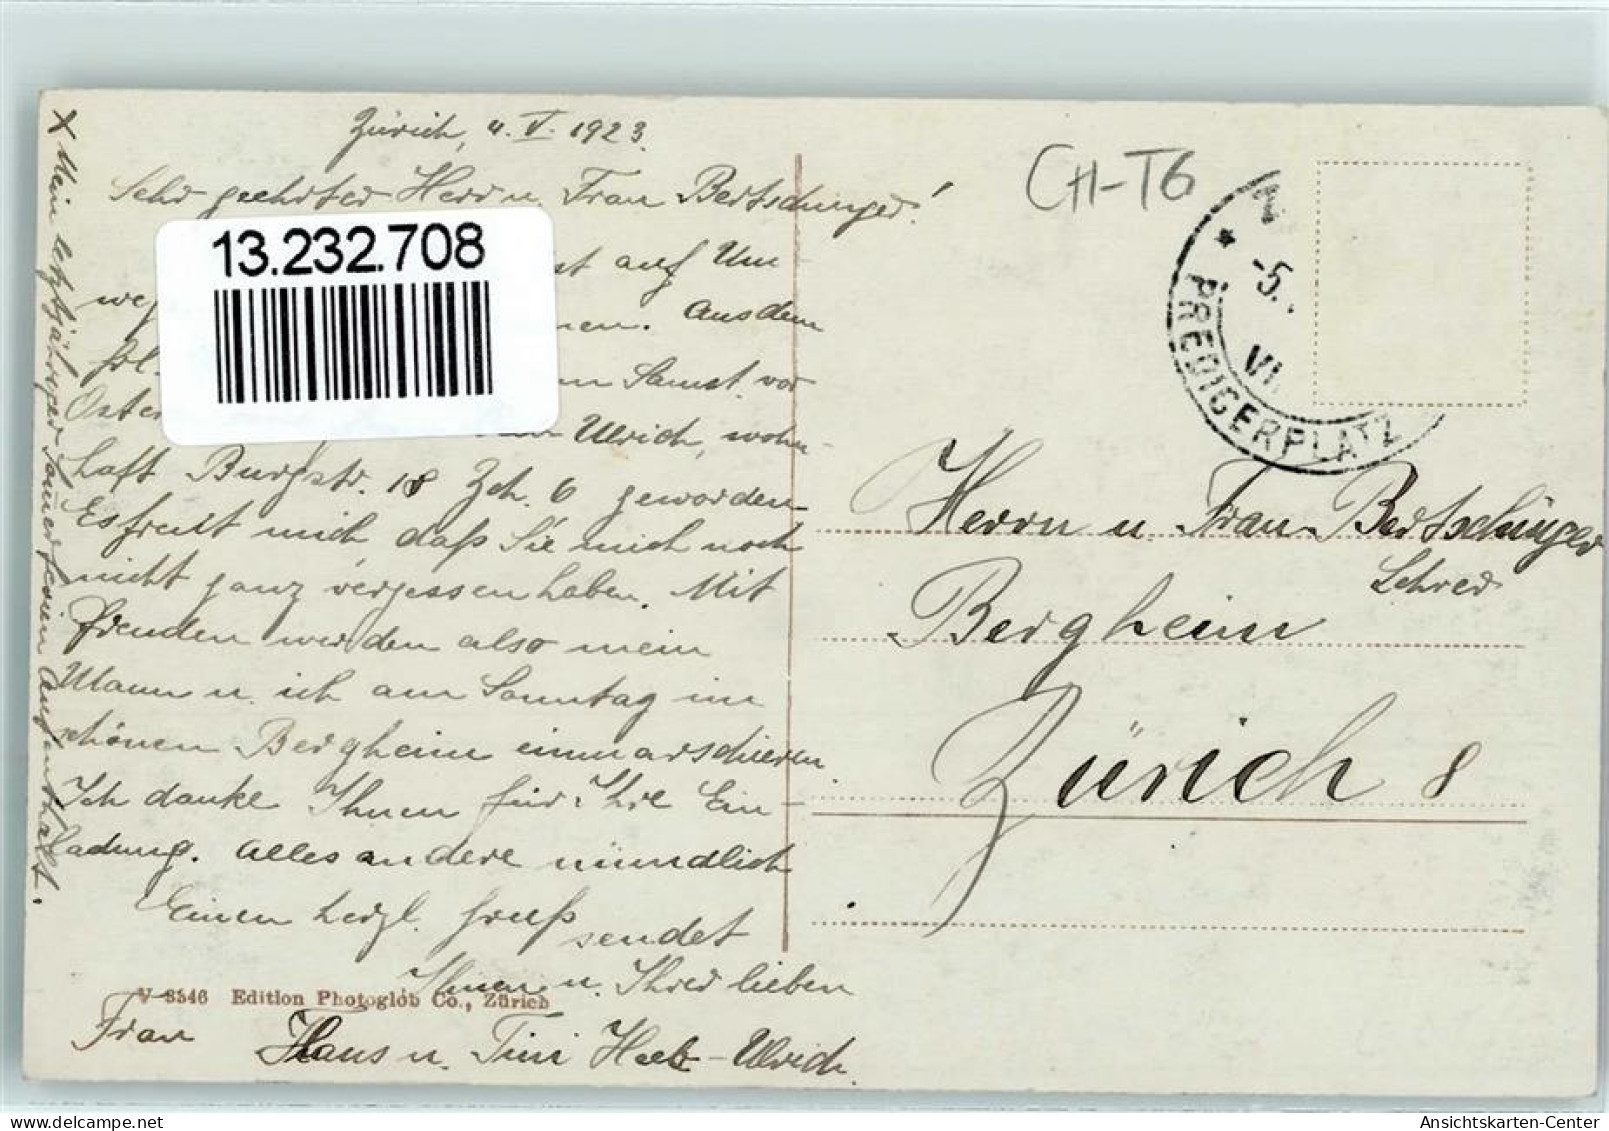 Zürich, 4. V. 1923.
Sehr geehrter Herr u. Frau Bertschinger!
13.232.708
auf Um-
weg
Aus dem
Samst. vor
Oster
Ulrich, wohn-
haft Burgstr. 18 Zch. 6 geworden.
Es freut mich daß Sie mich noch
nicht ganz vergessen haben. Mit
Freuden werden also mein
Mann u. ich am Sonntag im
schönen Bergheim einmarschieren.
Ich danke Ihnen für Ihre Ein-
ladung. Alles andere mündlich
Einen herzl. Gruß
sendet
Ihnen u. Ihrer lieben
Frau Hans u. Tini Heeb-Ulrich.
V 3546 Edition Photoglob Co., Zürich
X Mein letztjähriger Sommerferien Aufenthalt.
CH-T6
-5.
VI
PREDIGERPLATZ
Herrn u. Frau Bertschinger
Lehrer
Bergheim
Zürich 8
Ansichtskarten-Center